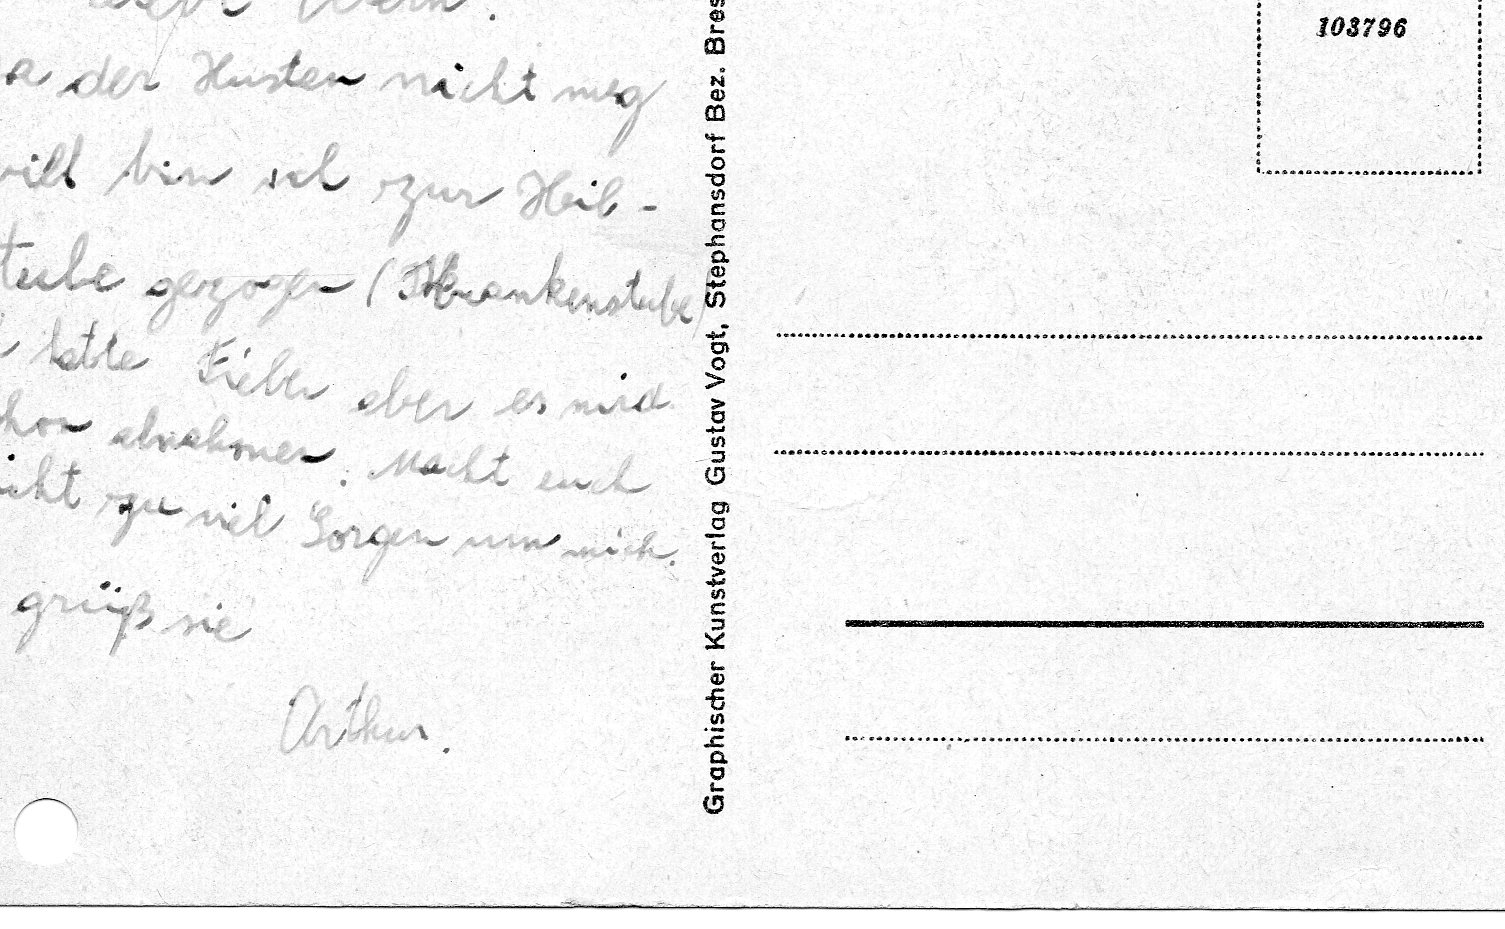 a der Husten nicht weg
will bin ich zur Heil-
tube gezogen (Krankenstube)
hatte Fieber aber es wird
abnahmen. Macht euch
icht zu viel Sorgen um mich.
grüß sie
Arthur.
Graphischer Kunstverlag Gustav Vogt, Stephansdorf Bez. Bres
103796